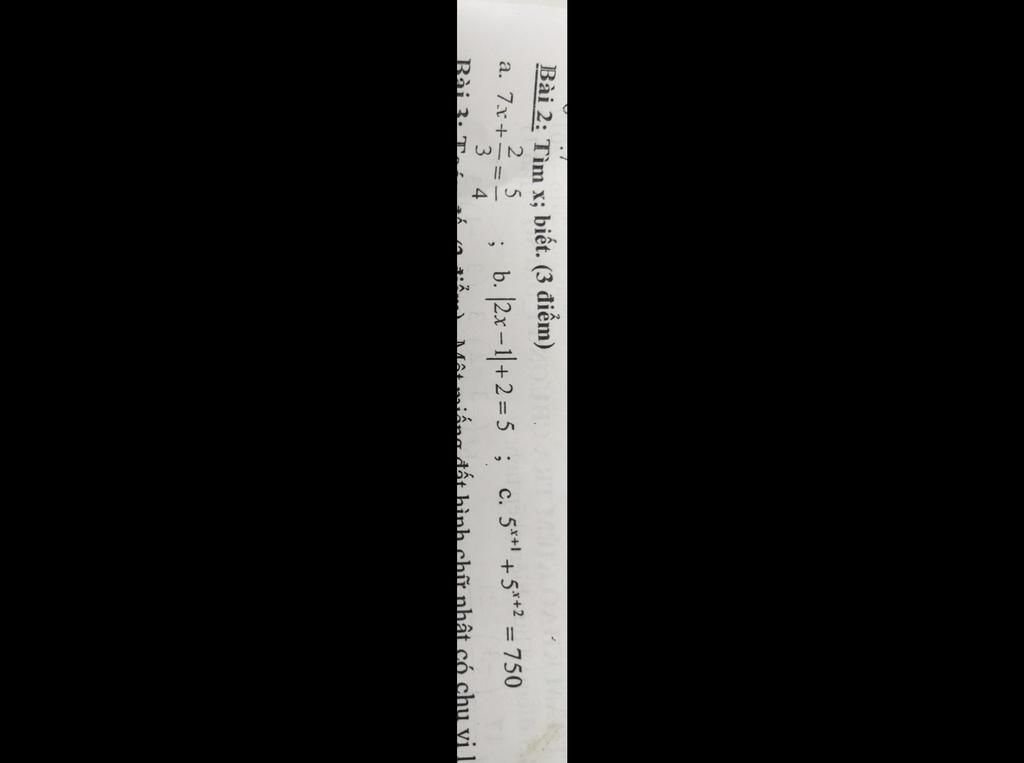 Bài 2: Tìm x; biết. (3 điểm)
a. 7x + 2/3 = 5/4 ; b. |2x − 1| + 2 = 5 ; c. 5^{x+1} + 5^{x+2} = 750
Bài 3: (2 điểm). Một miếng đất hình chữ nhật có chu vi